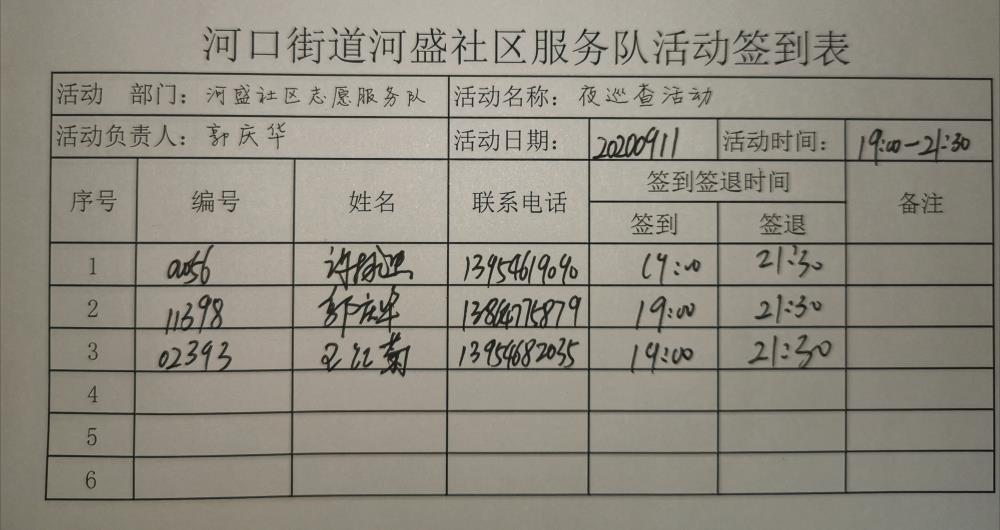 河口街道河盛社区服务队活动签到表
活动 部门：河盛社区志愿服务队 活动名称：夜巡查活动
活动负责人：郭庆华 活动日期： 20200911 活动时间： 19:00-21:30
序号 编号 姓名 联系电话 签到签退时间 备注
签到 签退
1 0056 许 13954619090 19:00 21:30
2 11398 郭庆华 13864775879 19:00 21:30
3 02393 王红菊 13954682035 19:00 21:30
4
5
6